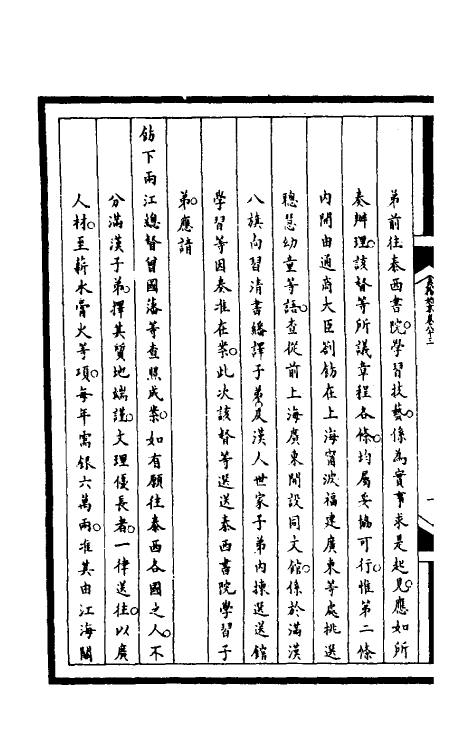 弟前往泰西書院。學習技藝。係為實事求是起見。應如所
奏辦理。該督等所議章程各條。均屬妥協可行。惟第二條
內開由通商大臣劄飭在上海甯波福建廣東等處挑選
聰慧幼童等語。查從前上海廣東開設同文館。係於滿漢
八旗向習清書繙譯子弟。及漢人世家子弟內揀選送館
學習等因奏准在案。此次該督等選送泰西書院學習子
弟。應請
飭下兩江總督曾國藩等查照成案。如有願往泰西各國之人。不
分滿漢子弟。擇其質地端謹。文理優長者。一律送往。以廣
人材。至薪水膏火等項。每年需銀六萬兩。准其由江海關